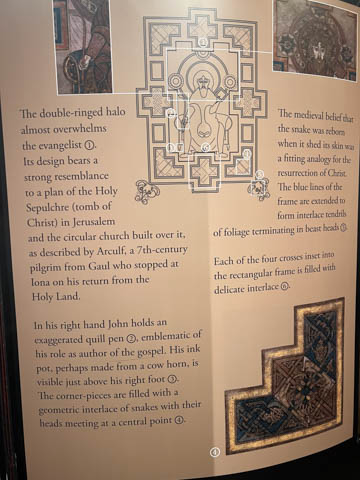 The double-ringed halo
almost overwhelms
the evangelist ①.
Its design bears a
strong resemblance
to a plan of the Holy
Sepulchre (tomb of
Christ) in Jerusalem
and the circular church built over it,
as described by Arculf, a 7th-century
pilgrim from Gaul who stopped at
Iona on his return from the
Holy Land.
In his right hand John holds an
exaggerated quill pen ②, emblematic of
his role as author of the gospel. His ink
pot, perhaps made from a cow horn, is
visible just above his right foot ③.
The corner-pieces are filled with a
geometric interlace of snakes with their
heads meeting at a central point ④.
The medieval belief that
the snake was reborn
when it shed its skin was
a fitting analogy for the
resurrection of Christ.
The blue lines of the
frame are extended to
form interlace tendrils
of foliage terminating in beast heads ⑤.
Each of the four crosses inset into
the rectangular frame is filled with
delicate interlace ⑥.
④